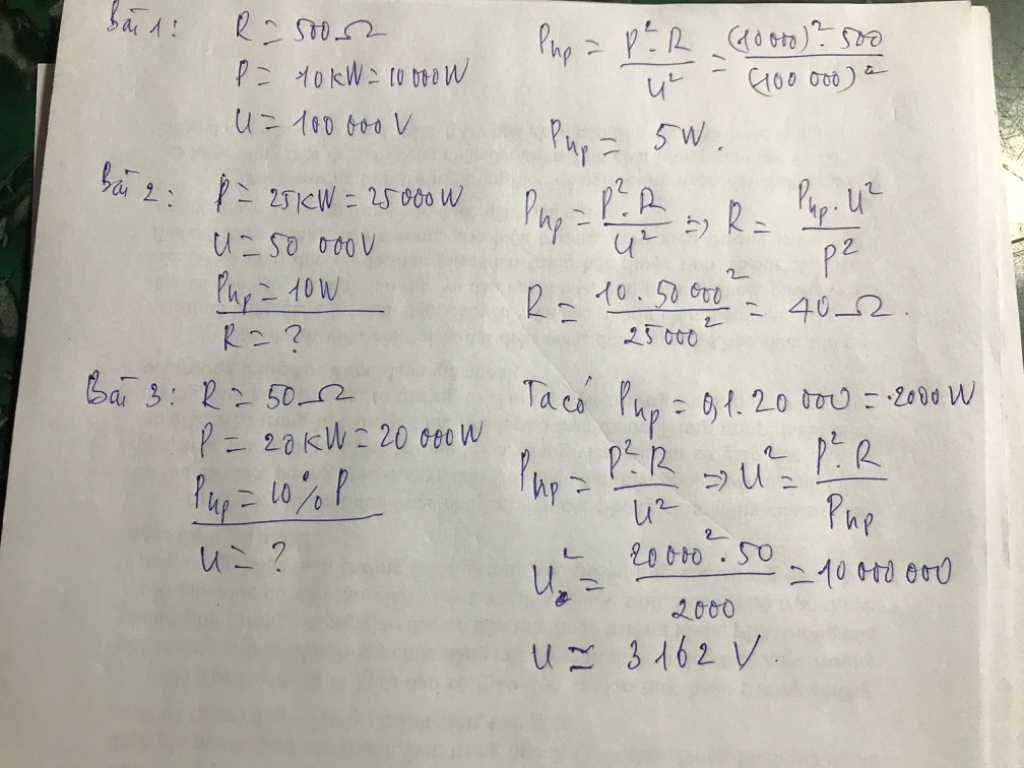 Bài 1: R = 500Ω
P = 10kW = 10000W
U = 100 000V
Php = P². R / U² = (10000)². 500 / (100 000)²
Php = 5W.
Bài 2: P = 25KW = 25000W
U = 50 000V
Php = 10W
R = ?
Php = P². R / U² => R = Php. U² / P²
R = 10. 50 000² / 25000² = 40Ω.
Bài 3: R = 50Ω
P = 20kW = 20 000W
Php = 10% P
U = ?
Ta có Php = 0,1. 20 000 = 2000 W
Php = P². R / U² => U² = P². R / Php
U² = 20000². 50 / 2000 = 10 000 000
U ≃ 3162 V